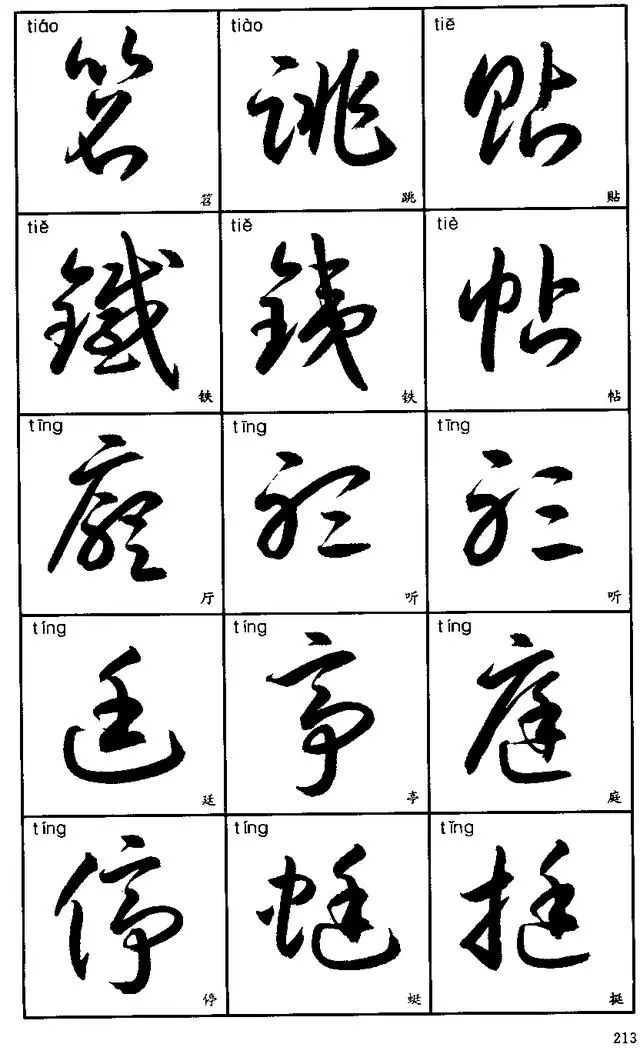 tiáo tiào tiē
笤 跳 貼
笤 跳 贴
tiě tiě tiè
鐵 銕 帖
铁 铁 帖
tīng tīng tīng
廳 聽 聽
厅 听 听
tíng tíng tíng
廷 亭 庭
廷 亭 庭
tíng tíng tǐng
停 蜓 挺
停 蜓 挺
213